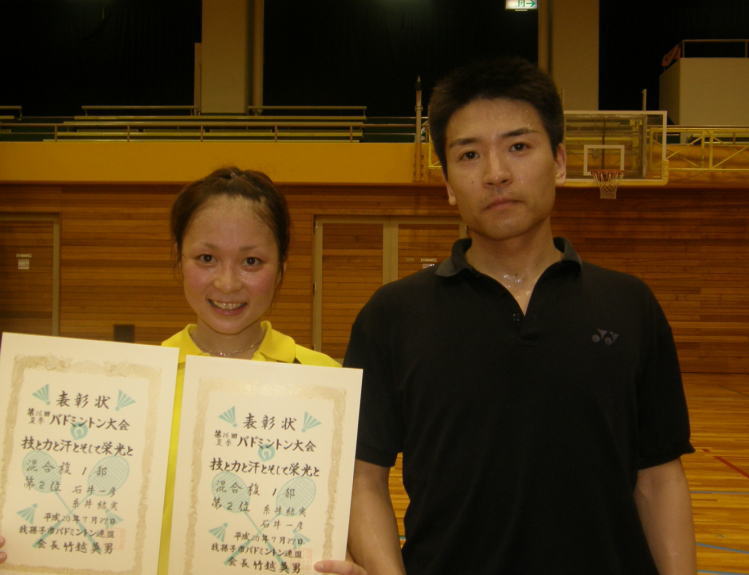 表彰状
第16回
夏季
バドミントン大会
技と力と汗とそして栄光と
混合複 1部
第2位 石井一彦
糸井結実
平成20年7月27日
我孫子市バドミントン連盟
会長 竹越英男
表彰状
第16回
夏季
バドミントン大会
技と力と汗とそして栄光と
混合複 1部
第2位 糸井結実
石井一彦
平成20年7月27日
我孫子市バドミントン連盟
会長 竹越英男